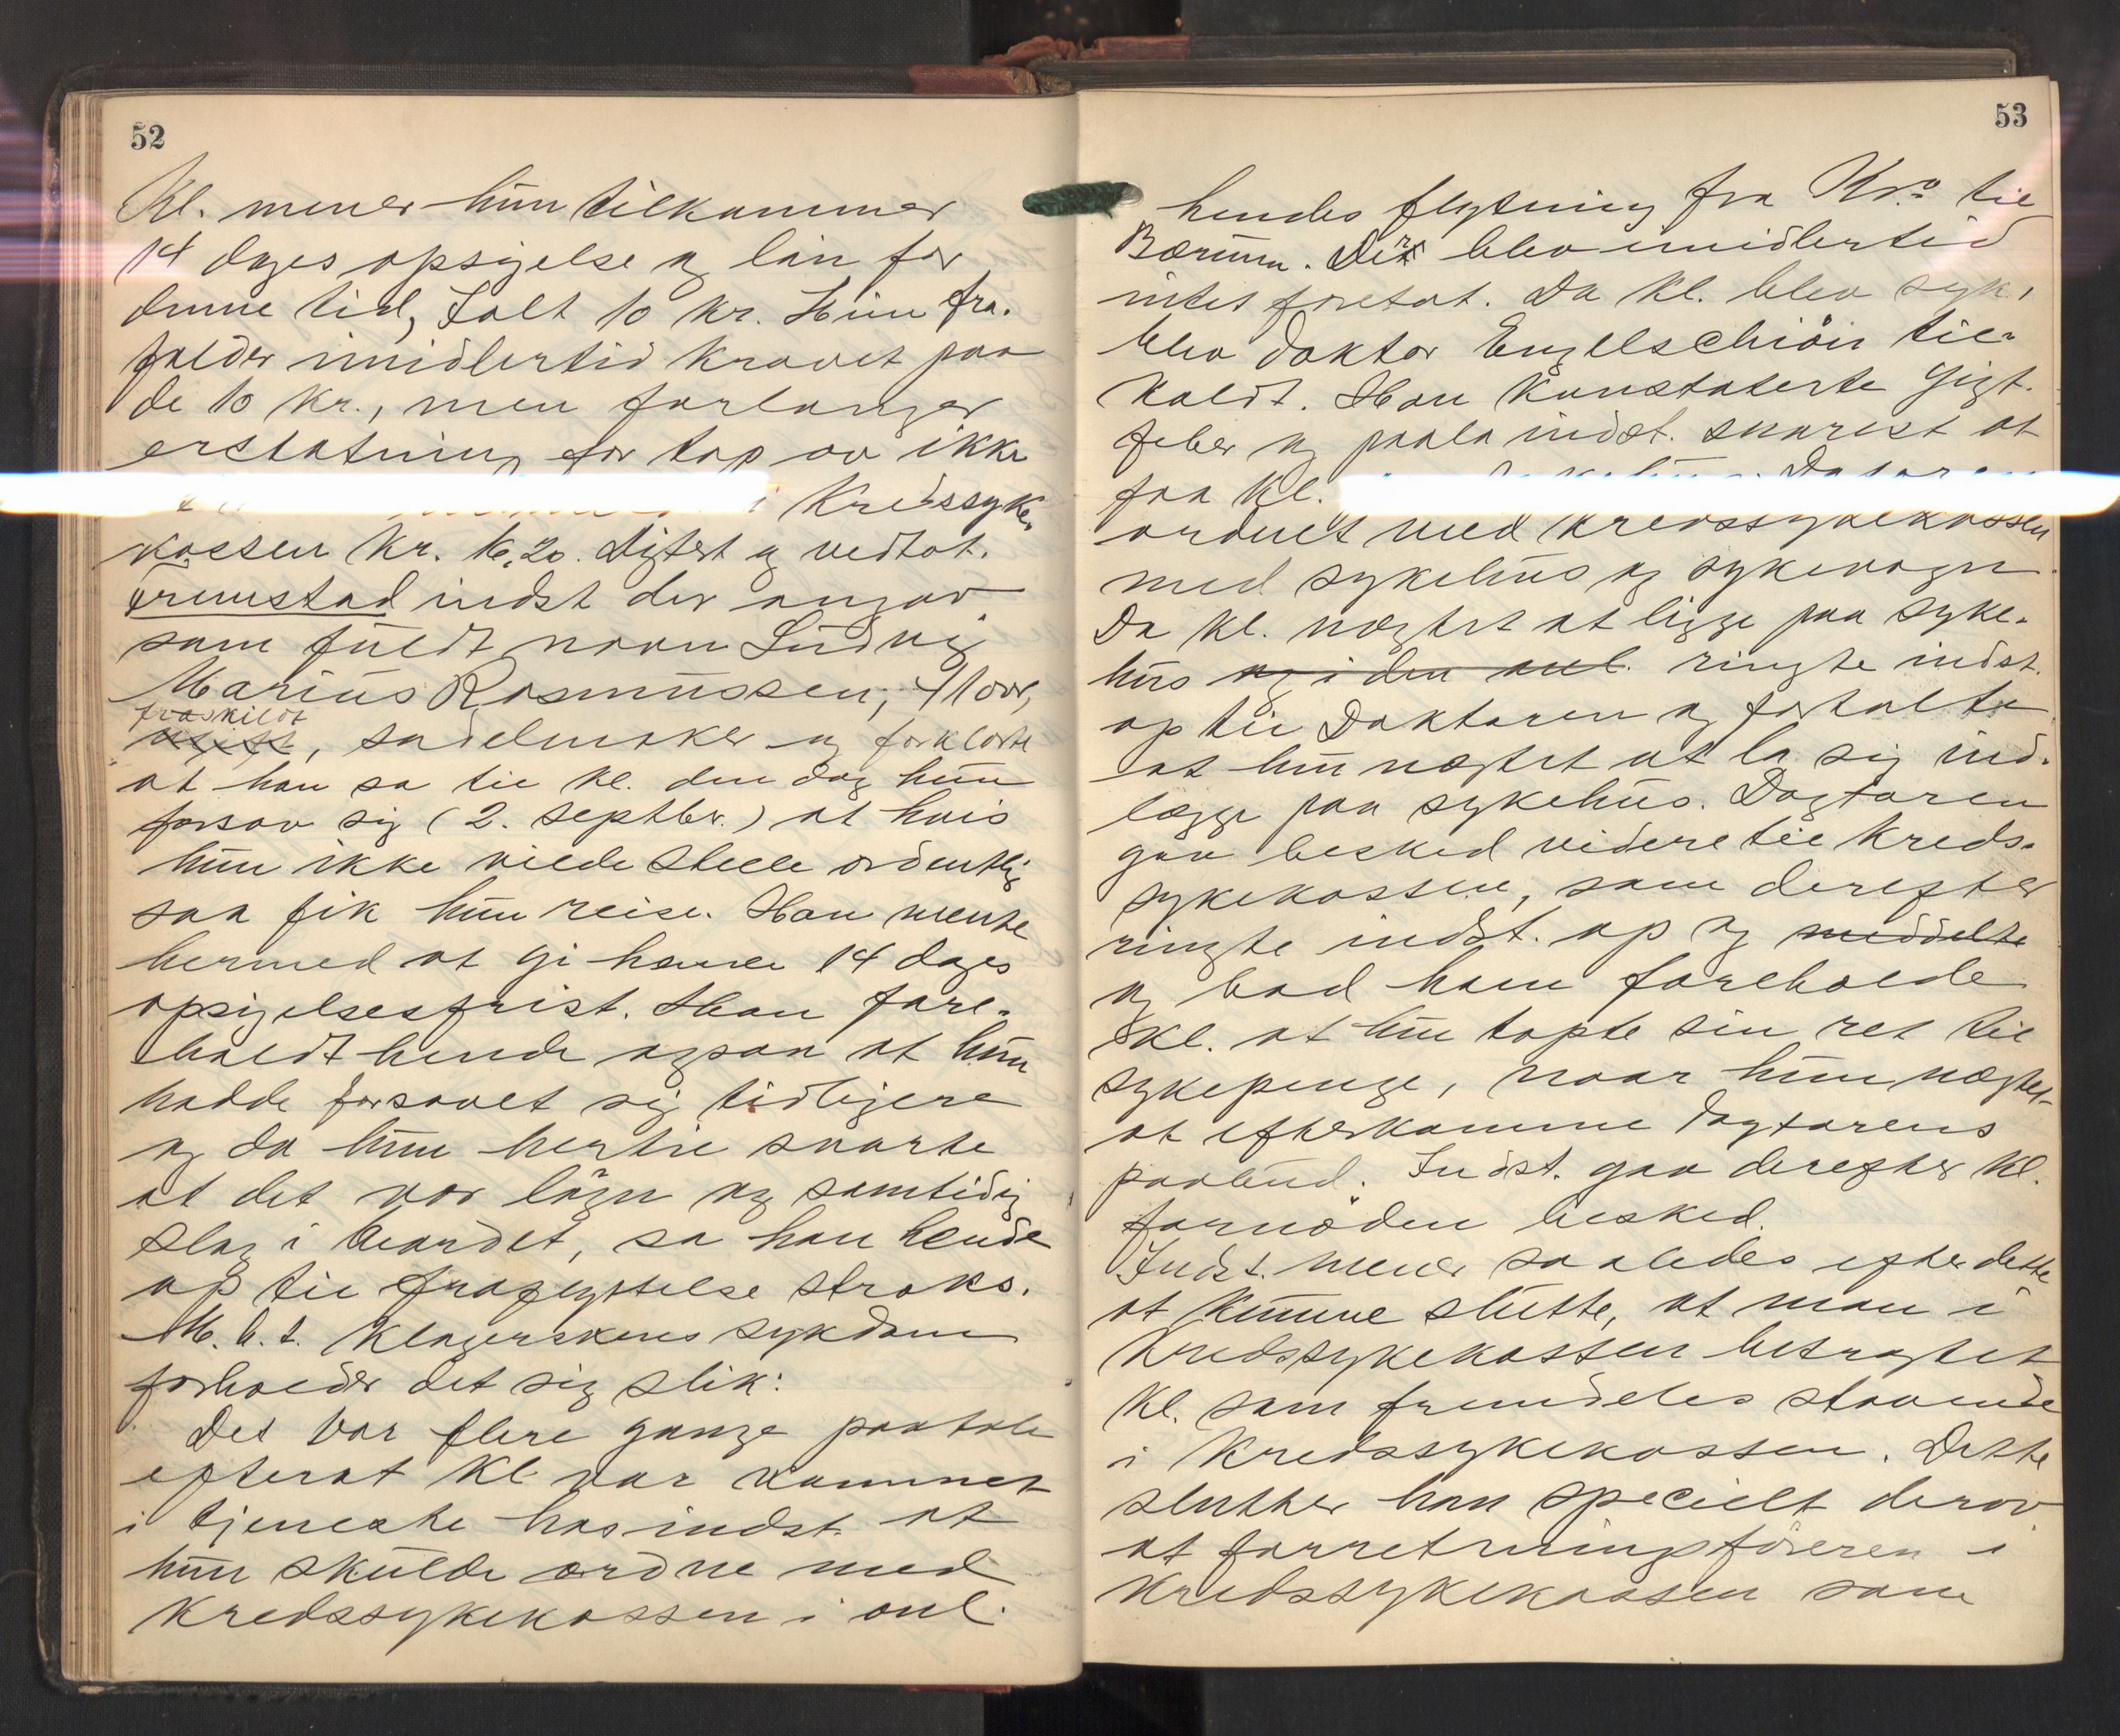 52
Kl. mener hun tilkommer
14 dages opsigelse og løn for
denne tid, Ialt 10 kr. Hun fra-
falder imidlertid kravet paa
de 10 kr., men forlanger
erstatning for tap av ikke
i Kredssyke-
kassen kr. 16,20. Digtert og vedtat.
indst der angav
som fuldt navn Ludvig
Marius Rasmussen, 41 aar,
fraskildt
ugift, sadelmaker og forklarte
at han sa til kl. den dag hun
forsov sig (2. septbr.) at hvis
hun ikke vilde stelle ordentlig
saa fik hun reise. Han mente
hermed at gi henne 14 dages
opsigelsesfrist. Han fore-
holdt hende ogsaa at hun
hadde forsovet sig tidligere
og da hun hertil svarte
at det var løgn og samtidig
slag i bordet, sa han hende
op til fraflyttelse straks.
M.h.t. Klagerskens sykdom
forholder det sig slik:
Det var flere gange paatalt
efterat Kl. var kommet
i tjeneste hos indst. at
hun skulde ordne med
Kredssykekassen i anl.
53
hendes flytning fra Kr.a til
Bærum. Det blev imidlertid
intet foretat. Da kl. blev syk,
blev doktor Engelschiøn til-
kaldt. Han konstaterte gigt-
feber og paala indst. snarest at
faa kl.
ordnet med kredssykekassen
med sykehus og sykevogn.
Da kl. nægtet at ligge paa syke-
hus og i den anl. ringte indst.
op til Doktoren og fortalte
at hun nægtet at la sig ind-
lægge paa sykehus. Dogtoren
gav besked videre til Kreds-
sykekassen, som derefter
ringte indst. op og meddelte
og bad ham foreholde
Kl. at hun tapte sin ret til
sykepenge, naar hun nægtet
at efterkomme dogtorens
paabud. Indst. gav derefter Kl.
fornøden besked.
Indst. mener saaledes efter dette
at kunne slutte, at man i
Kredssykekassen betragtet
Kl. som fremdeles staaende
i Kredssykekassen. Dette
slutter han specielt derav
at forretningsføreren i
Kredssykekassen som